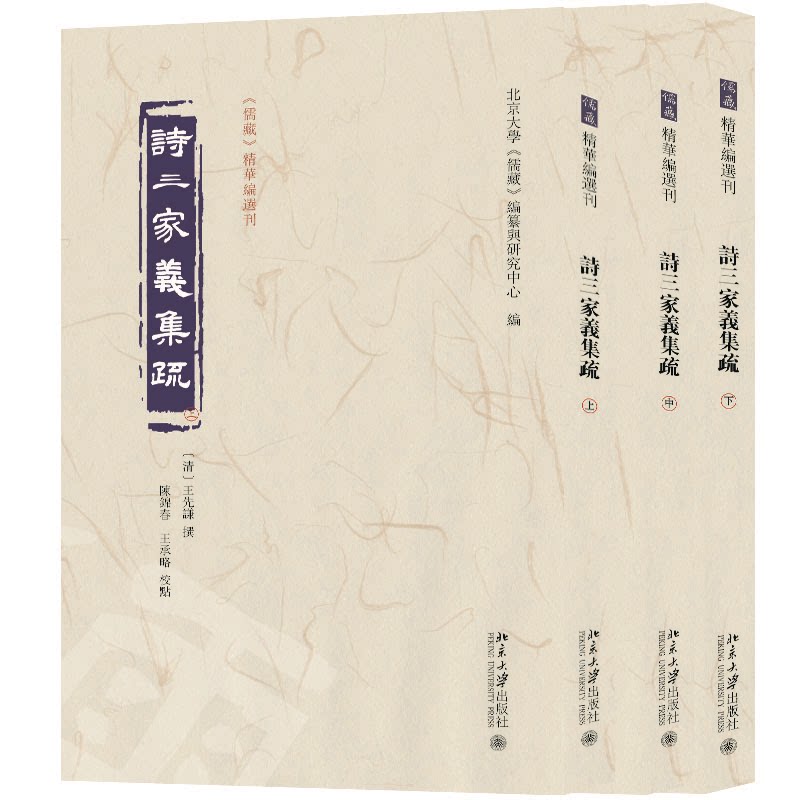 詩三家義集疏
《儒藏》精華編選刊
〔清〕王先謙 撰
陳錦春 王承略 校點
北京大學《儒藏》編纂與研究中心 編
北京大学出版社
PEKING UNIVERSITY PRESS
儒藏
精華編選刊
詩三家義集疏
上
北京大学出版社
PEKING UNIVERSITY PRESS
儒藏
精華編選刊
詩三家義集疏
中
北京大学出版社
PEKING UNIVERSITY PRESS
儒藏
精華編選刊
詩三家義集疏
下
北京大学出版社
PEKING UNIVERSITY PRESS